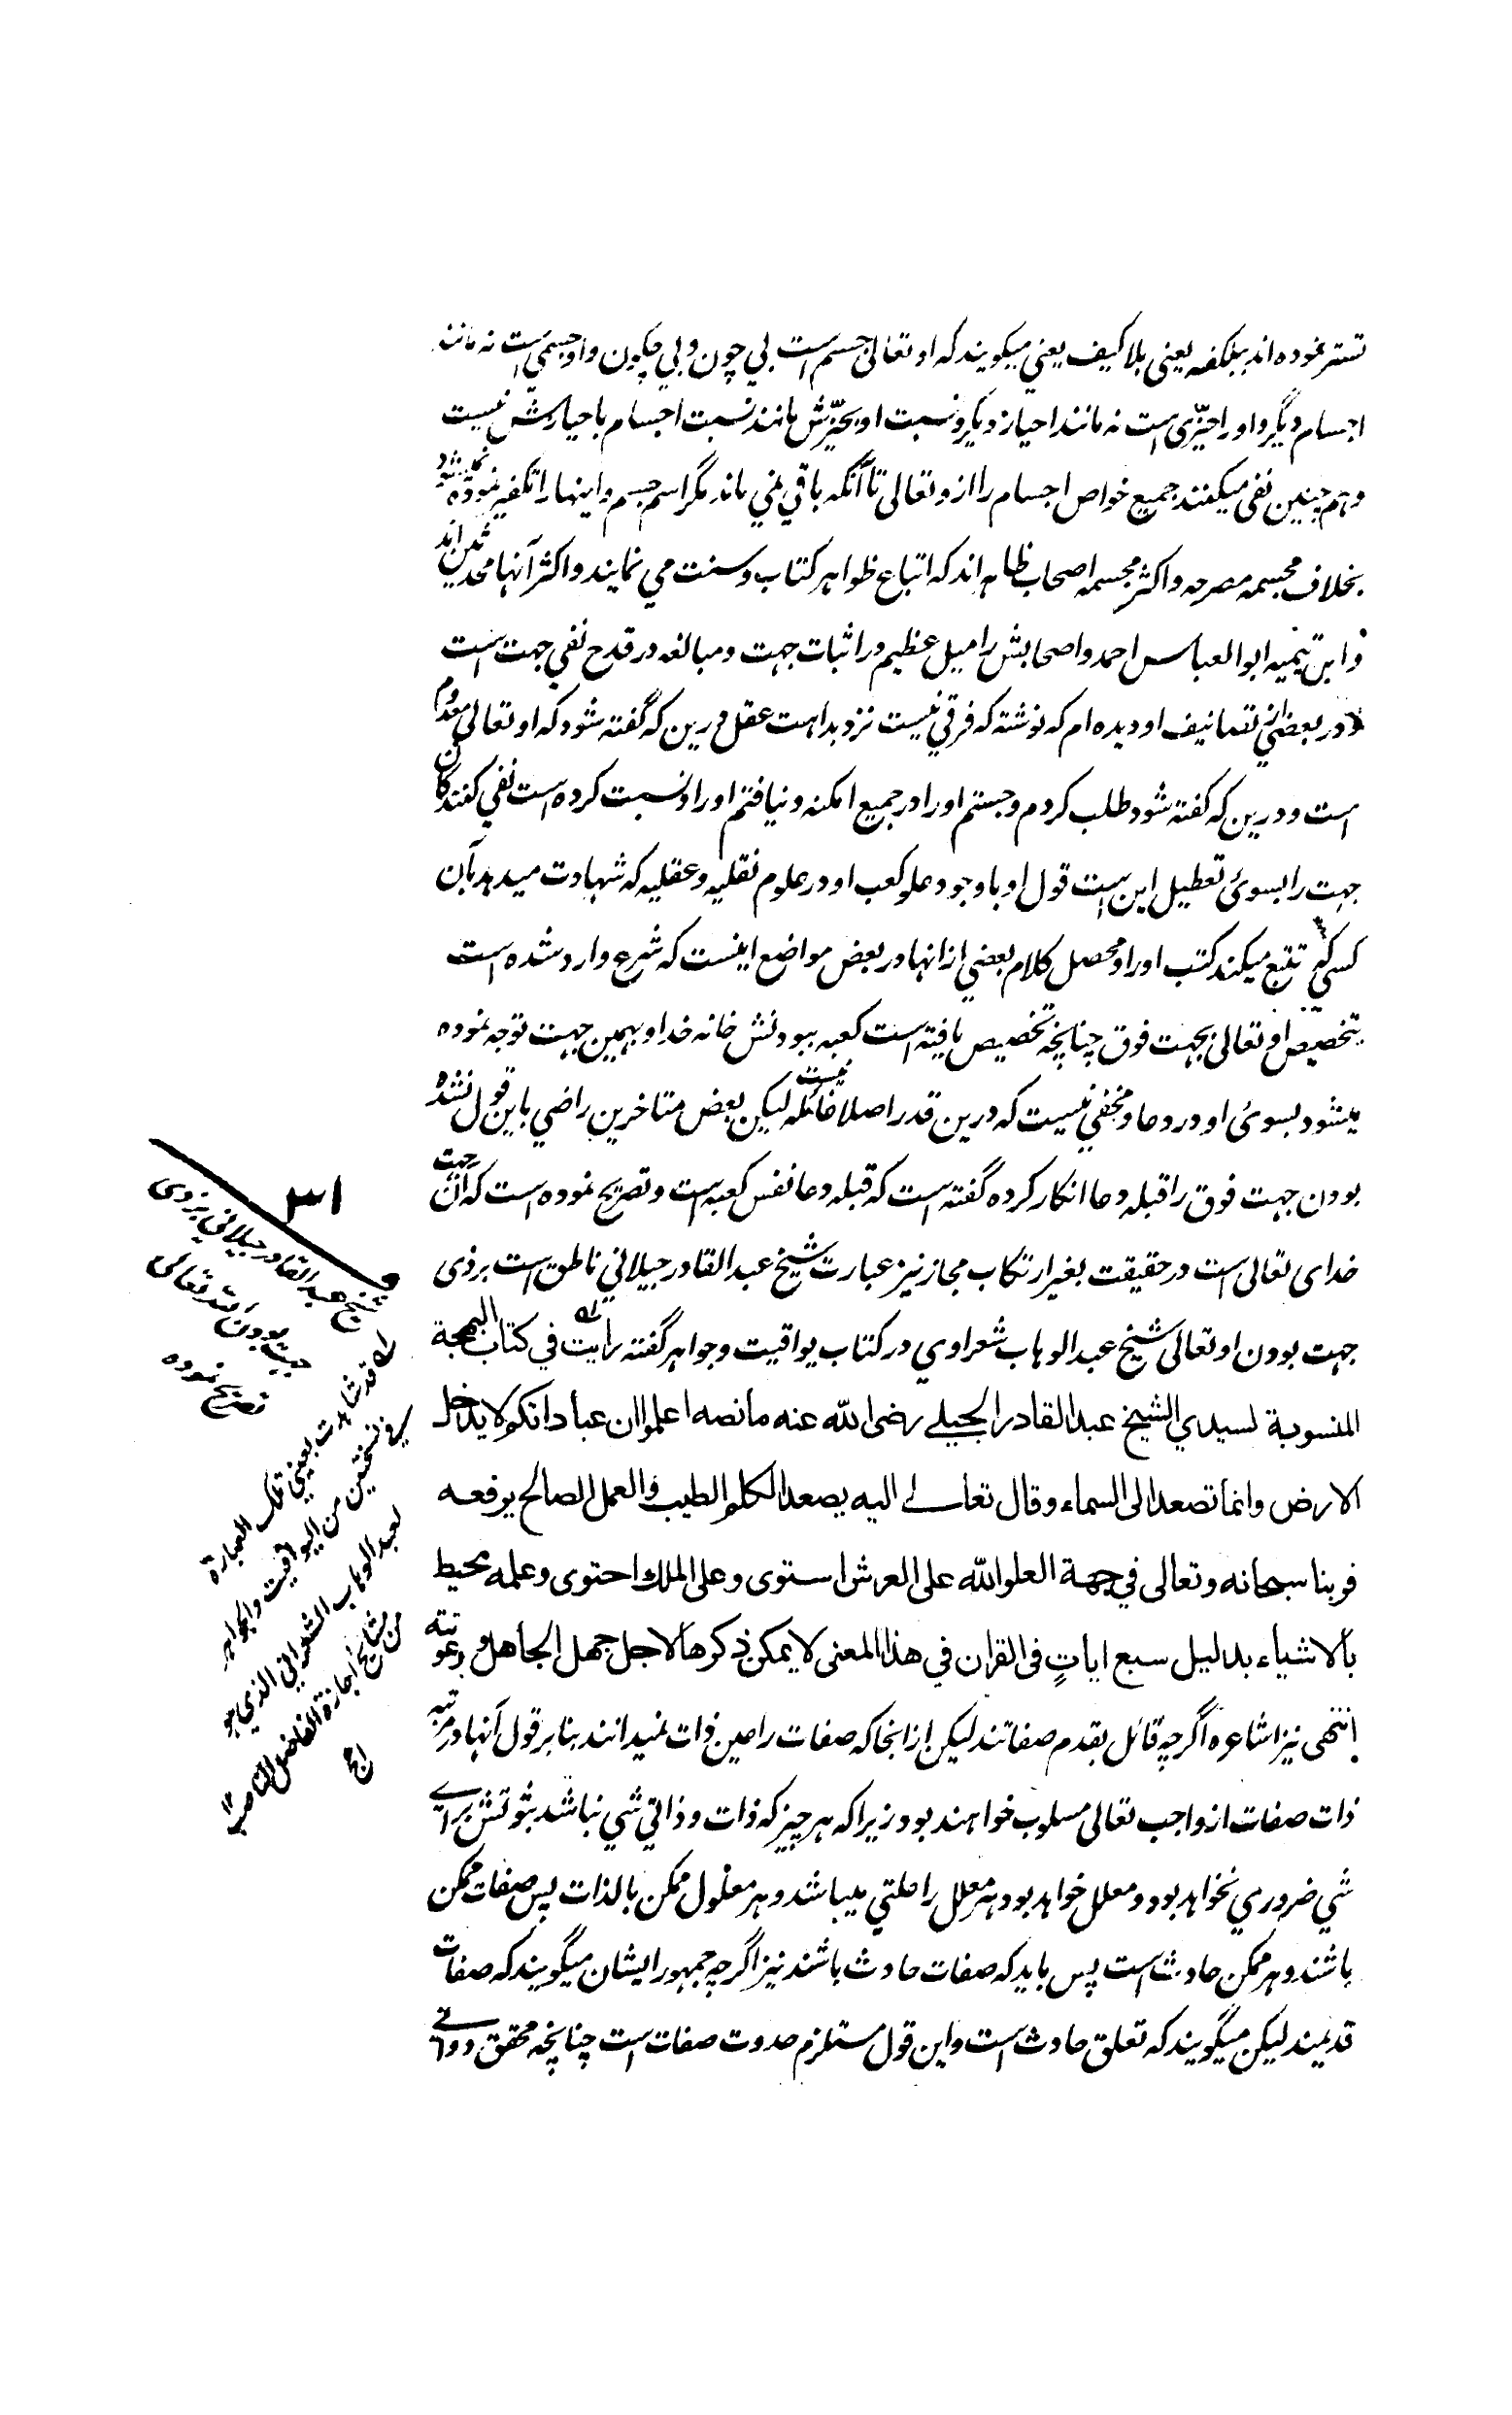 تستر نموده اند ببلکفه یعنی بلا کیف یعنی میگویند که او تعالی جسم است بی چون و بی چگون و او جسمی است نه مانند
اجسام دیگر و او را حیّزی است نه مانند احیاز دیگر و نسبت او بحیّزش مانند نسبت اجسام باحیازش نیست
و هم چنین نفی میکنند جمیع خواص اجسام را از و تعالی تا آنکه باقی نمی ماند مگر اسم جسم و اینها را تکفیر نموده نمیشود
بخلاف مجسمه مصرحه و اکثر مجسمه اصحاب ظاهر اند که اتباع ظواهر کتاب و سنت می نمایند و اکثر آنها محدثین اند
و ابن تیمیه ابو العباس احمد و اصحابش را میل عظیم در اثبات جهت و مبالغه در قدح نفی جهت است
و در بعضی از تصانیف او دیده ام که نوشته که فرقی نیست نزد بداهت عقل درین که گفته شود که او تعالی معدوم
است و درین که گفته شود طلب کردم و جستم او را در جمیع امکنه و نیافتم او را و نسبت کرده است نفی کنندگان
جهت را بسوی تعطیل این است قول او با وجود علو کعب او در علوم نقلیه و عقلیه که شهادت میدهد بآن
کسی که تتبع میکند کتب او را و محصل کلام بعضی از انها در بعض مواضع اینست که شرع وارد شده است
بتخصیص او تعالی بجهت فوق چنانچه تخصیص یافته است کعبه ببودنش خانه خدا و بهمین جهت توجه نموده
میشود بسوی او در دعا و مخفی نیست که درین قدر اصلا غائله نیست لیکن بعض متاخرین راضی باین قول نشده
بودن جهت فوق را قبله دعا انکار کرده گفته است که قبله دعا نفس کعبه است و تصریح نموده است که آن جهت
خدای تعالی است در حقیقت بغیر ارتکاب مجاز نیز عبارت شیخ عبد القادر جیلانی ناطق است بر ذی
جهت بودن او تعالی شیخ عبد الوهاب شعراوی در کتاب یواقیت و جواهر گفته رایت في کتاب البهجة
المنسوبة لسیدي الشیخ عبد القادر الجیلے رضی الله عنه ما نصه اعلموا ان عبادا تکم لا یدخل
الارض وانما تصعد الی السماء وقال تعالے الیه یصعد الکلم الطیب والعمل الصالح یرفعه
فربنا سبحانه وتعالی في جهة العلو الله علی العرش استوی وعلی الملک احتوی وعلمه محیط
بالاشیاء بدلیل سبع ایاتٍ فی القران في هذا المعنی لا یمکن ذکرها لاجل جهل الجاهل ورعونته
انتهی نیز اشاعره اگر چه قائل بقدم صفاتند لیکن از انجا که صفات را عین ذات نمیدانند بنا بر قول آنها در مرتبه
ذات صفات از واجب تعالی مسلوب خواهند بود زیرا که هر چیز که ذات و ذاتی شي نباشد ثبوتش برای
شي ضروری نخواهد بود و معلل خواهد بود و هر معلل را علتی میباشد و هر معلول ممکن بالذات پس صفات ممکن
باشند و هر ممکن حادث است پس باید که صفات حادث باشند نیز اگر چه جمهور ایشان میگویند که صفات
قدیمند لیکن میگویند که تعلق حادث است و این قول مستلزم حدوث صفات است چنانچه محقق دوانے
۳۱
شیخ عبد القادر جیلانی بر ذی
جهت بودن الله تعالی
تصریح نموده
قد شاهدت بعینی تلک العبارة
في نسختین من الیواقیت والجواهر
لعبد الوهاب الشعرانی الذي هو
من مشایخ اجازة الفاضل